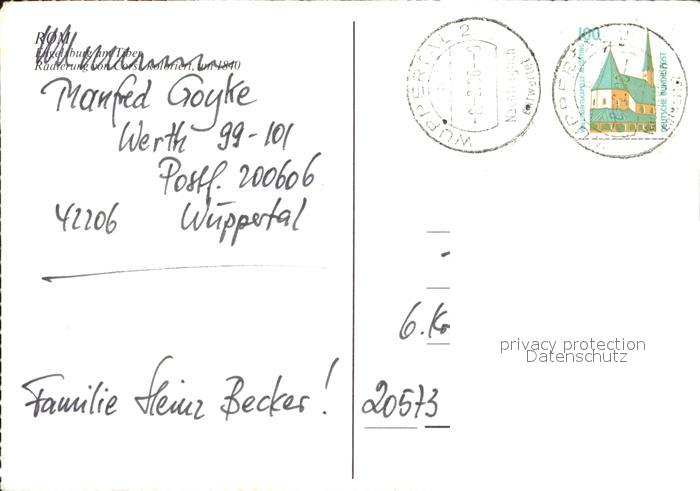 ROM
Engelsburg am Tiber
Radierung von Corsi, koloriert, um 1840
Manfred Goyke
Werth 99-101
Postf. 200606
42206 Wuppertal
Familie Heinz Becker!
WUPPERTAL 2
100
DEUTSCHE BUNDESPOST
6. Kr
privacy protection
Datenschutz
20573